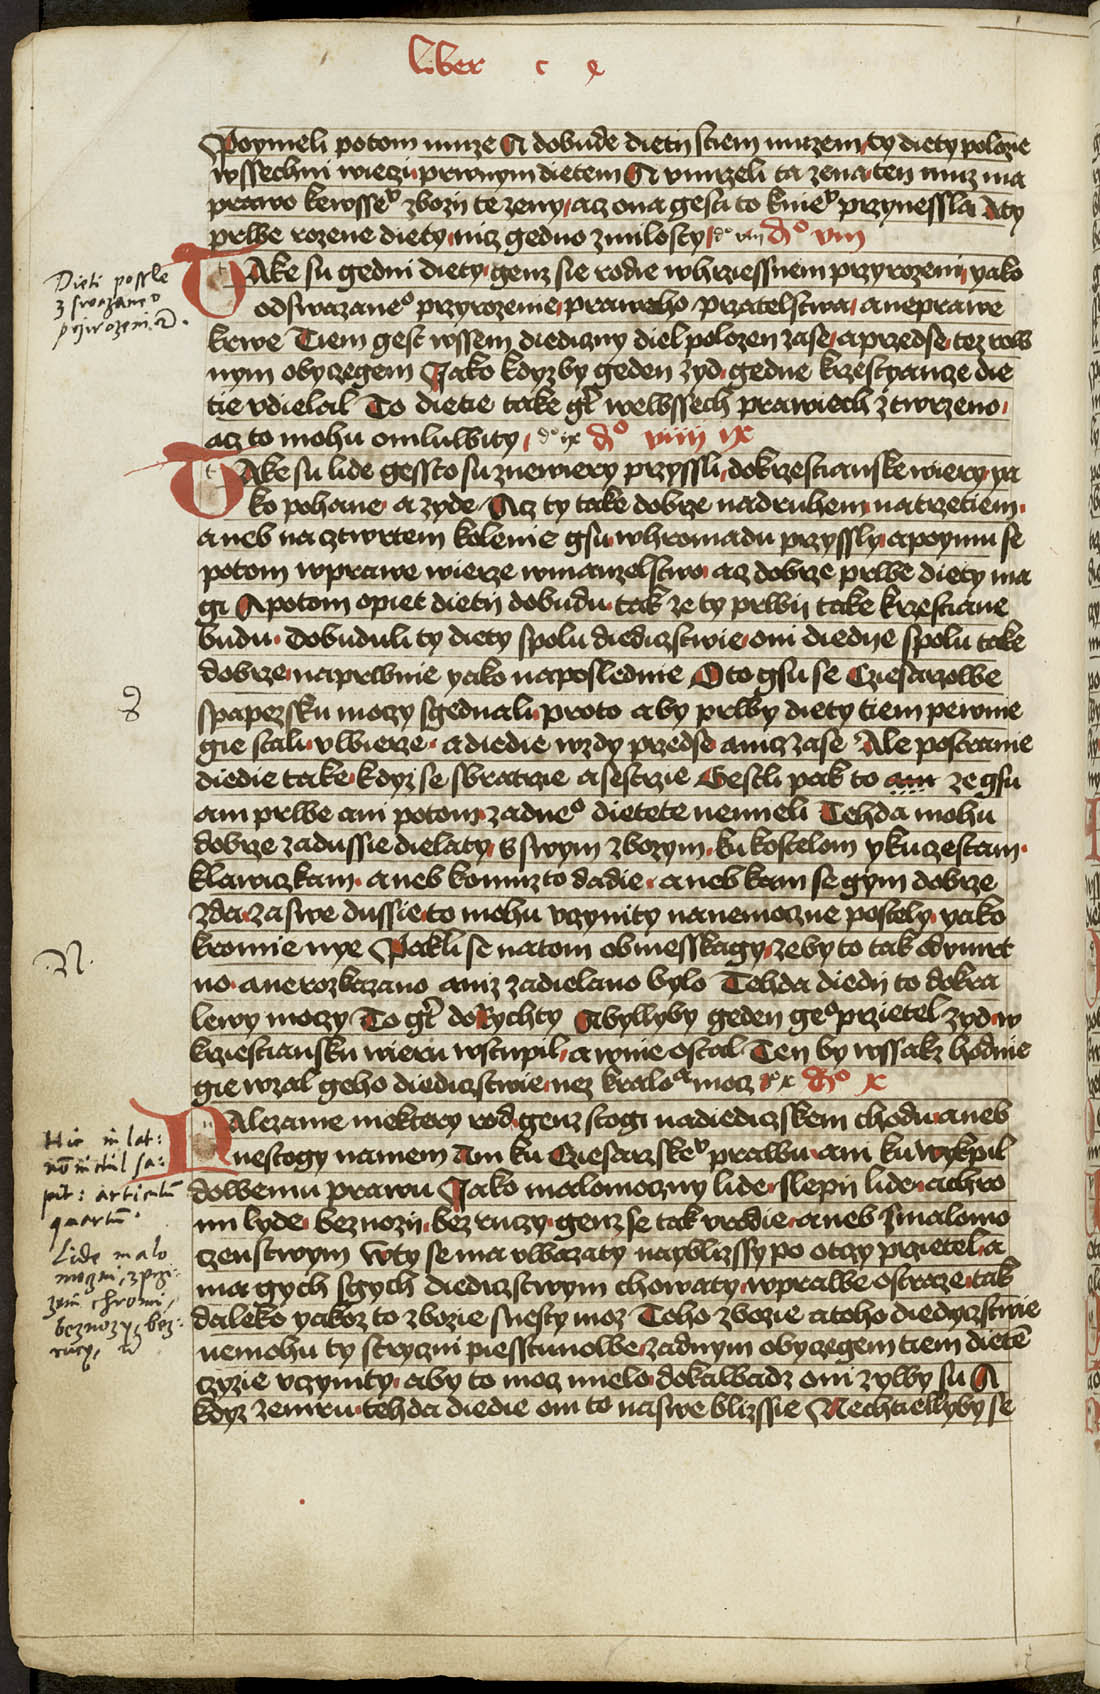 liber c e
Poymeli potom muze A dobude dietij sciem muzem ty diety polozie
wssechni wieczi prwnym dietem A vmrzeli ta zena ten muz ma
prawo kewsseᵒ zbozij te zeny acz ona gesti to knieᵒ przynessla A ty
prwe rozene diety nicz gedno z milosty dᵒ viij dᵒ viij
Take su gedni diety genz sie rodie whrziessnem przyrozeni yako
odswazaneᵒ przyrozenie praweho przatelstwa aneprawe
krwe Tiem gest wssem diediczny diel polozen zase aprzedse tez row
nym obyczegem Jako kdyzby geden zyd gedne krzestyancze die
tie vdielal To dietie take gt wewssech prawiech ztwrzeno
acz to mohu omluwity dᵒ ix dᵒ viiij ix
Take su lide gessto su znewiery przyssli dokrzestianske wiery ya
ko pohane a zyde Acz ty take dobrze nadruhem natrzetiem
aneb na cztwrtem kolenie gsu whromadu przyssly apoymu se
potom wprawe wierze wmanzelstwo acz dobrze prwe diety ma
gi A potom opiet dietij dobudu tak ze ty prwij take krzestiane
budu Dobuduli ty diety spolu diediczstwie oni diedie spolu take
dobrze naprwnie yako naposlednie O to gsu se Cziesarzowe
spapezsku moczy sgednali proto aby prwy diety tiem pewnie
gie stali vwierze a diedie wzdy przedse anicz zase Ale postranie
diedie take kdyz se sbratrzie a sestrzie Gestli pak to ani ze gsu
ani prwe ani potom zadneᵒ dietete nemieli Tehda mohu
dobrze zadussie dielaty s swym zbozym ku kostelom y kuczestam
klawiczkam aneb komuzto dadie aneb kam se gym dobrze
zda za swe dussie to mohu vczynity nanemoczne postely yako
kromie nye Pakli se natom obmesskagy zeby to tak odvmrt
no anerozkazano aniz zadielano bylo Tehda diedij to dokra
lewy moczy To gt do Rychty Abyllyby geden geᵒ przietel zyd w
krziestiansku wieru wstupil a wnie ostal Ten by wssakz hodnie
gie wzal geho diediczstwie nez kralowa mocz dᵒ x dᵒ x
Nalezame niektery rod genz stogi nadiediczskem chodu aneb
nestogy namem Ani ku Cziesarzskeᵒ prawu ani ku wykpil
dowemu prawu Jako malomoczny lide slepij lide a chro
mi lyde beznozij bez ruczy genz se tak vrodie aneb s malomo
czenstwym W ty se ma vwazaty nayblizssy po otczy przietel a
ma gych sgych diediczstwym chowaty wprawe ostraze tak
daleko yakoz to zbozie snesty moz Toho zbozie a toho diedyczstwie
nemohu ty stryczni piesstunowe zadnym obyczegem tiem dieten
czyzie vczynity aby to mocz mielo dokawadz oni zywy su A
kdyz zemru tehda diedie oni to naswe blizssie Nechtiellyby se
Dieti possle
z swazaneᵒ
prziwozeni. 2.
.N.
Hic in lat:
non nichil sa
pit: articulum
quartum.
Lide malo
mozni, z przi:
zeni chromi,
beznozy, bez:
rucy, 2